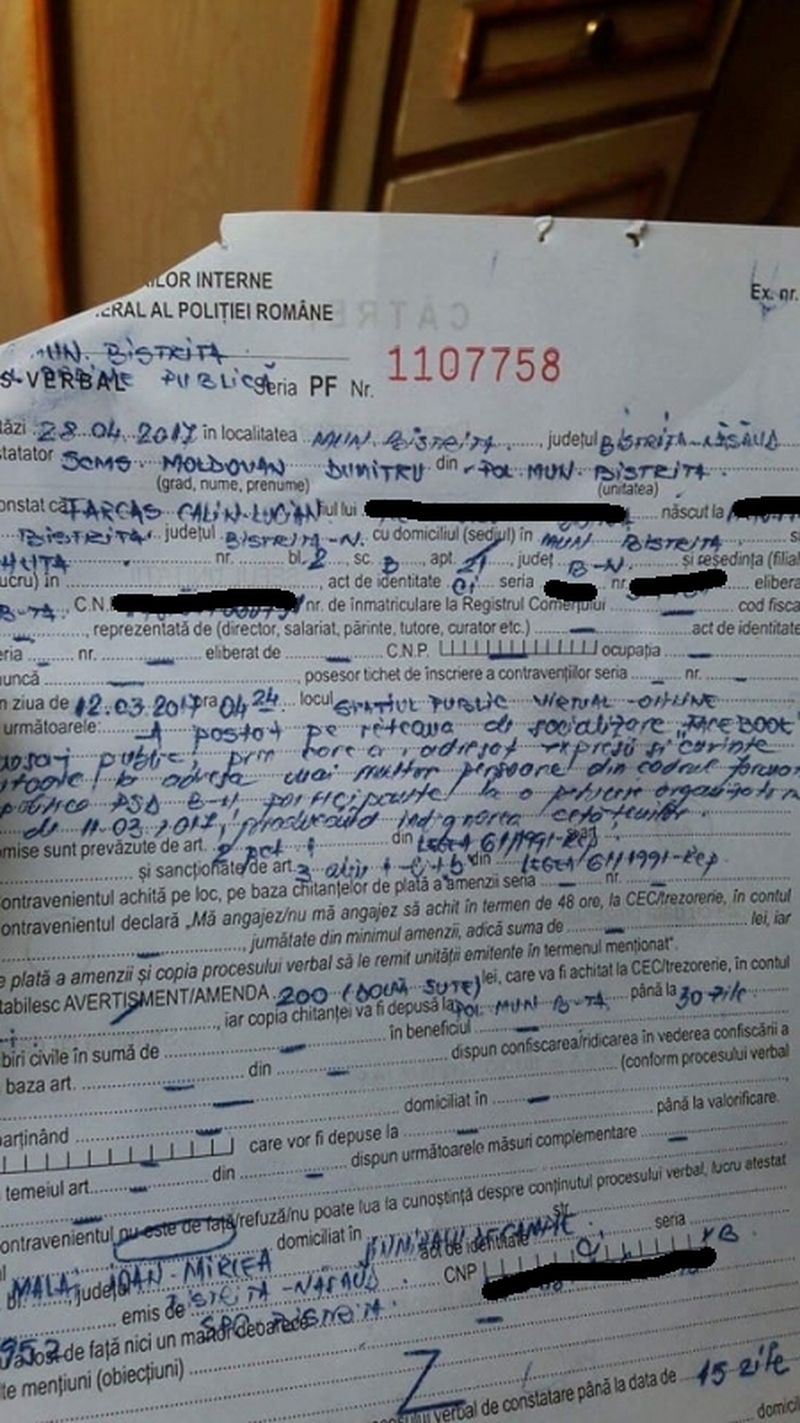 ILOR INTERNE
Ex. nr.
ERAL AL POLIȚIEI ROMÂNE
CĂTRE
MUN. BISTRITA
S-VERBAL PUBLICĂ Seria PF Nr. 1107758
tăzi 28.04.2017 în localitatea MUN. BISTRITA, județul BISTRIȚA-NĂSĂUD
statator SCMS MOLDOVAN DUMITRU din POL MUN. BISTRITA
(grad, nume, prenume) (unitatea)
onstat că FARCAS CALIN-LUCIAN iul lui născut la
BISTRITA județul BISTRITA-N. cu domiciliul (sediul) în MUN BISTRITA
nr. bl. 2 sc. B apt. 21 județ B-N. și reședința (filial
ucru) în act de identitate CI seria nr. elibera
B-TA, C.N. nr. de înmatriculare la Registrul Comerțului cod fisca
, reprezentată de (director, salariat, părinte, tutore, curator etc.) act de identitate
eria nr. eliberat de C.N.P. ocupația
muncă, posesor tichet de înscriere a contravențiilor seria nr.
n ziua de 12.03.2017 ora 04 24 locul SPATIUL PUBLIC VIRTUAL-ONLINE
următoarele: A postat pe rețeaua de socializare „FACEBOOK"
public, prin care a adresat expresii si cuvinte
la adresa mai multor persoane din cadrul
politice PSD B-N participante la o
din 11.03.2017, producând indignarea cetatenilor.
omise sunt prevăzute de art. 2 pct 1 din LEGEA 61/1991-Rep
și sancționate de art. 3 alin 1 lit b din LEGEA 61/1991-Rep
ontravenientul achită pe loc, pe baza chitanțelor de plată a amenzii seria nr.
ontravenientul declară „Mă angajez/nu mă angajez să achit în termen de 48 ore, la CEC/trezorerie, în contul
, jumătate din minimul amenzii, adică suma de lei, iar
e plată a amenzii și copia procesului verbal să le remit unității emitente în termenul menționat".
tabilesc AVERTISMENT/AMENDA 200 (DOUĂ SUTE) lei, care va fi achitat la CEC/trezorerie, în contul
, iar copia chitanței va fi depusă la POL MUN B-TA până la 30 zile
biri civile în sumă de în beneficiul
baza art. din dispun confiscarea/ridicarea în vederea confiscării a
(conform procesului verbal
parținând domiciliat în
care vor fi depuse la până la valorificare.
temeiul art. din dispun următoarele măsuri complementare
ontravenientul nu este de față/refuză/nu poate lua la cunoștință despre conținutul procesului verbal, lucru atestat
MALAI IOAN-MIRCEA domiciliat în str.
bl. județul BISTRITA-NASAUD act de identitate CI seria XB
emis de SPC BISTRITA CNP
a fost de față nici un martor deoarece
lte mențiuni (obiecțiuni)
sului verbal de constatare până la data de 15 zile
domicil